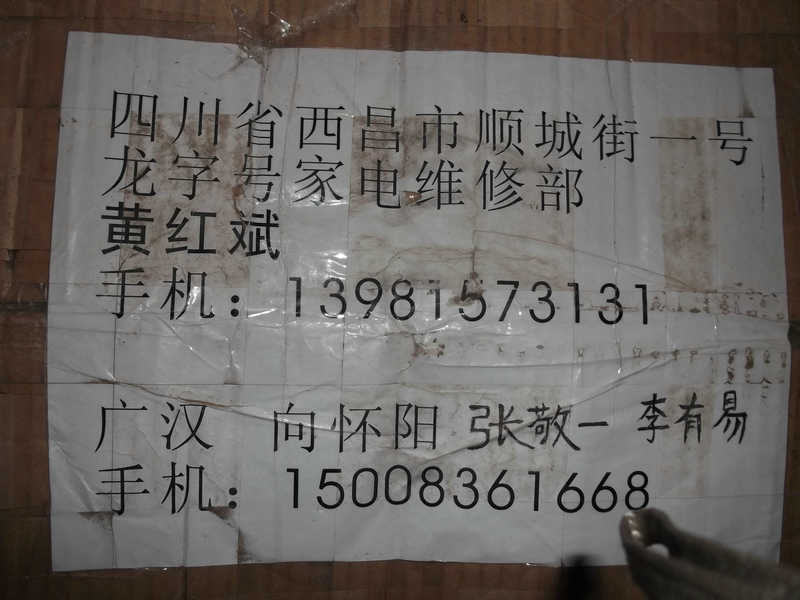 四川省西昌市顺城街一号
龙字号家电维修部
黄红斌
手机：13981573131
广汉 向怀阳 张敬一 李有易
手机：15008361668